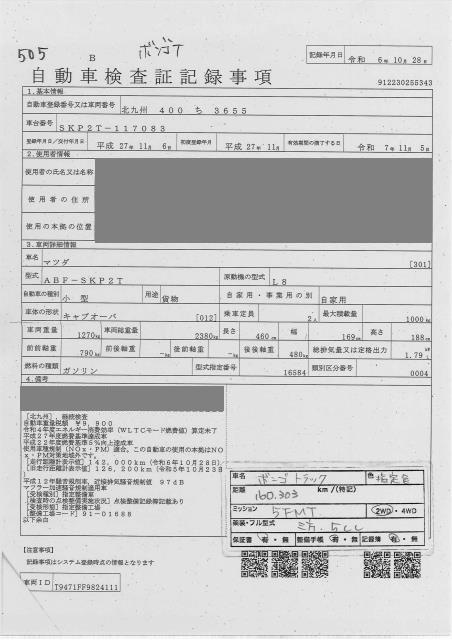 505
B
ボンゴT
記録年月日 令和 6年 10月 28日
自動車検査証記録事項
912230255343
1.基本情報
自動車登録番号又は車両番号 北九州 400 ち 3655
車台番号 SKP2T-117083
登録年月日/交付年月日 平成 27年 11月 6日 初度登録年月 平成 27年 11月 有効期間の満了する日 令和 7年 11月 5日
2.使用者情報
使用者の氏名又は名称
使用者の住所
使用の本拠の位置
3.車両詳細情報
車名 マツダ [301]
型式 ABF-SKP2T 原動機の型式 L8
自動車の種別 小型 用途 貨物 自家用・事業用の別 自家用
車体の形状 キャブオーバ [012] 乗車定員 2人 最大積載量 1000kg
車両重量 1270kg 車両総重量 2380kg 長さ 460cm 幅 169cm 高さ 188cm
前前軸重 790kg 前後軸重 -kg 後前軸重 -kg 後後軸重 480kg 総排気量又は定格出力 1.79L
燃料の種類 ガソリン 型式指定番号 16584 類別区分番号 0004
4.備考
[北九州],継続検査
自動車重量税額 ¥9,900
令和4年度エネルギー消費効率(WLTCモード燃費値)算定未了
平成27年度燃費基準達成車
平成22年度燃費基準5%向上達成車
使用車種規制(NOx・PM)適合,この自動車の使用の本拠はNO
x・PM対策地域外です。
[走行距離計表示値]142,000km(令和6年10月28日)
[旧走行距離計表示値]126,200km(令和5年10月23日
)
平成12年騒音規制車,近接排気騒音規制値 97dB
マフラー加速騒音規制適用車
[受検種別]指定整備車
[検査時の点検整備実施状況]点検整備記録簿記載あり
[受検形態]指定整備工場
[整備工場コード]91-01688
以下余白
車名 ボンゴトラック 色 指定色
距離 160,303 km/(特記)
ミッション 5FMT 2WD・4WD
架装・フル型式
保証書 有・無 整備手帳 有・無 記録簿 有・無
【注意事項】
記録事項はシステム登録時点の情報となります
車両ID T9471FF9824111